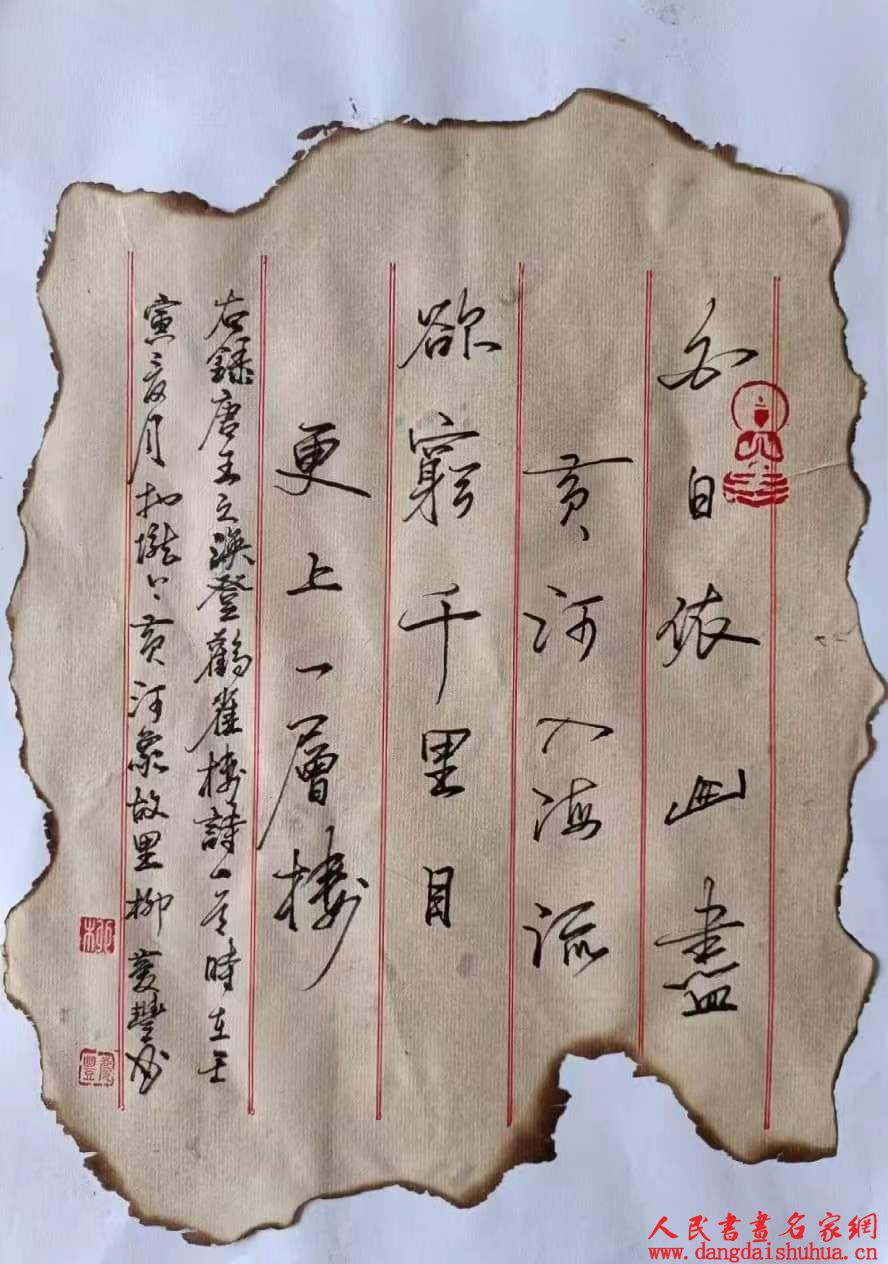 白日依山盡
黄河入海流
欲窮千里目
更上一層樓
右録唐王之渙登鸛雀樓詩一首時在壬
寅三月於隴上黄河象故里柳 豐書
柳
豐
人民書畫名家網
www.dangdaishuhua.cn